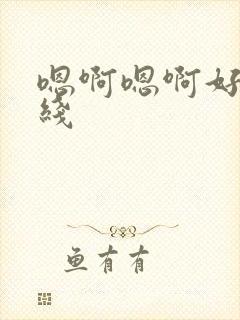 嗯啊嗯啊好
线
鱼有有